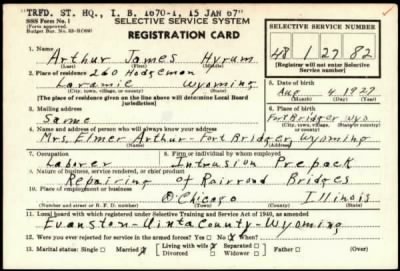 "TRFD. ST. HQ., I. B. 1670-1, 15 JAN 67"
SSS Form No. 1
(Form approved.
SELECTIVE SERVICE SYSTEM
REGISTRATION CARD
SELECTIVE SERVICE NUMBER
48 1 27 82
(Registrar will not enter Selective Service number)
1. Name
Arthur James Hyrum
(Last) (First) (Middle)
2. Place of residence 260 Hodgeman
Laramie Wyoming
(City, town, village, or county) (State)
[The place of residence given on the line above will determine Local Board jurisdiction.]
5. Date of birth
Aug 4 1927
3. Mailing address
Same
6. Place of birth
Fort Bridger Wyo
(City, town, village or county) (State or country)
4. Name and address of person who will always know your address
Mrs. Elmer Arthur - Fort Bridger Wyoming
7. Occupation
Laborer
8. Firm or individual by whom employed
Intrusion Prepack
9. Nature of business, service rendered, or chief product
Repairing of Rairroad Bridges
10. Place of employment or business
Chicago Illinois
(Number and street or R. F. D. number) (City, town, village, or county) (State)
11. Local board with which registered under Selective Training and Service Act of 1940, as amended
Evanston - Uinta County - Wyoming
12. Were you ever rejected for service in the armed forces? Yes No
13. Marital status: Single Married Living with wife Separated Divorced Widower (Over)